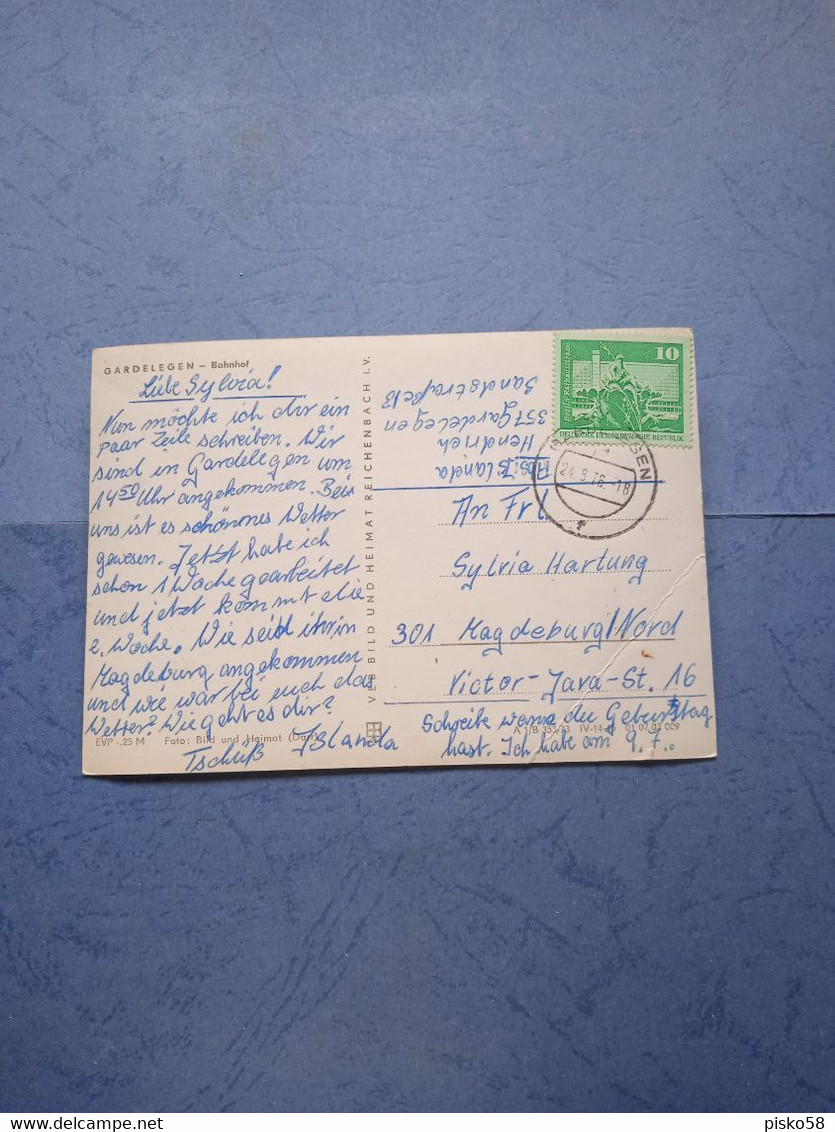 GARDELEGEN – Bahnhof
Liebe Sylvia!
Nun möchte ich dir ein
paar Zeile schreiben. Wir
sind in Gardelegen um
14 50 Uhr angekommen. Bei
uns ist es schönnes Wetter
gewesen. Jetzt habe ich
schon 1 Woche gearbeitet
und jetzt kommt die
2. Woche. Wie seid ihr in
Magdeburg angekommen
und wie war bei euch das
Wetter? Wie geht es dir?
Tschüß Islanda
EVP -,25 M Foto: Bild und Heimat
VEB BILD UND HEIMAT REICHENBACH I. V.
Abs: Islanda
Hendrich
357 Gardelegen
Sandstraße 13
10
Berlin, Rathausstraße
DEUTSCHE DEMOKRATISCHE REPUBLIK
24.8.76.-18
An Frl
Sylvia Hartung
301 Magdeburg/Nord
Victor-Jara-St. 16
Schreibe wann du Geburtstag
hast. Ich habe am 9.7.
A 1/B IV-14- 01 07 03 009
delcampe.net
pisko58